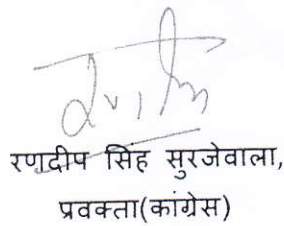 रणदीप सिंह सुरजेवाला,
प्रवक्ता(कांग्रेस)